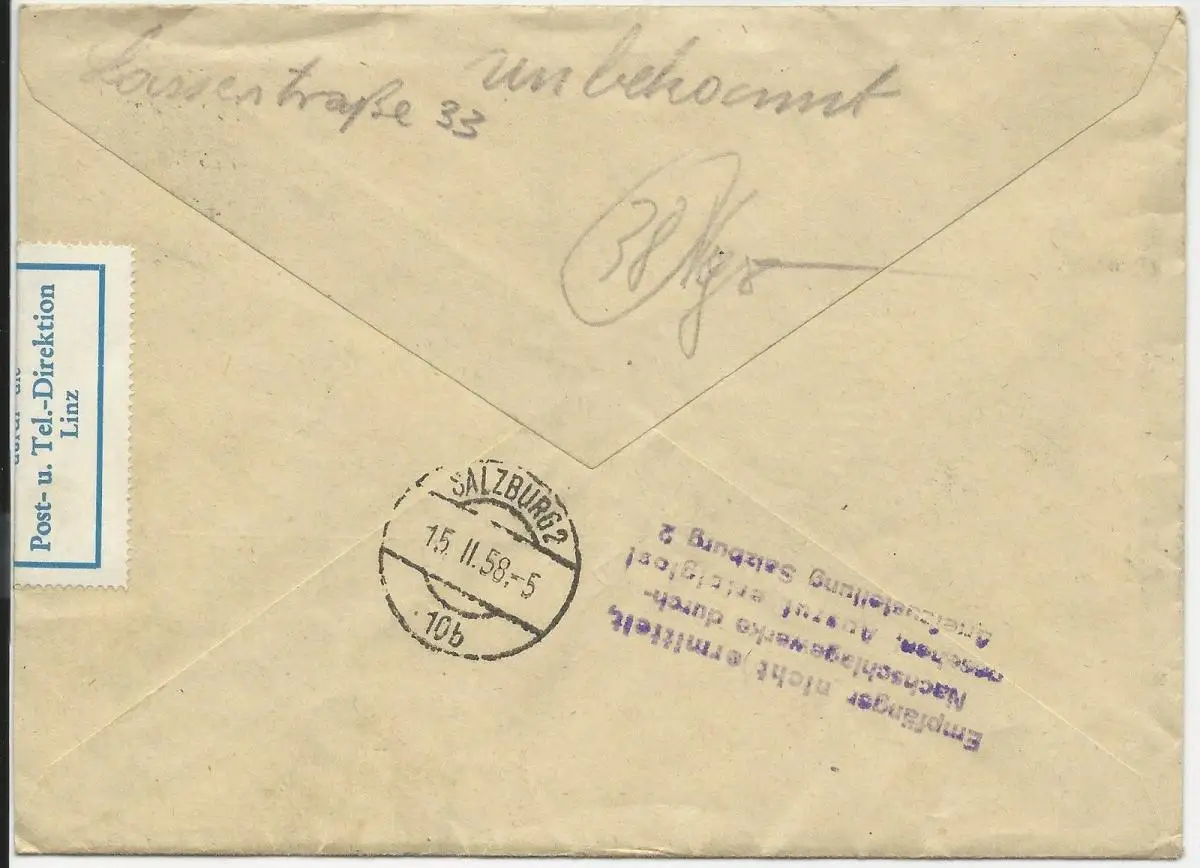 Lasserstraße 33
unbekannt
38
Post- u. Tel.-Direktion
Linz
SALZBURG 2
15. II. 58.-5
10b
Empfänger nicht ermittelt,
Nachschlagewerke durch-
gesehen, Aufruf erfolglos!
Briefzustellung Salzburg 2